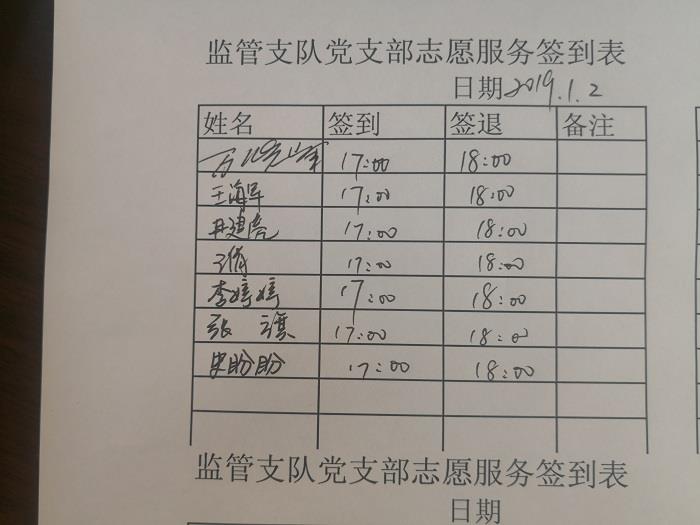 监管支队党支部志愿服务签到表
日期2019.1.2
姓名 签到 签退 备注
17:00 18:00
王海军 17:00 18:00
建亮 17:00 18:00
王 17:00 18:00
李婷婷 17:00 18:00
张 17:00 18:00
史盼盼 17:00 18:00
监管支队党支部志愿服务签到表
日期